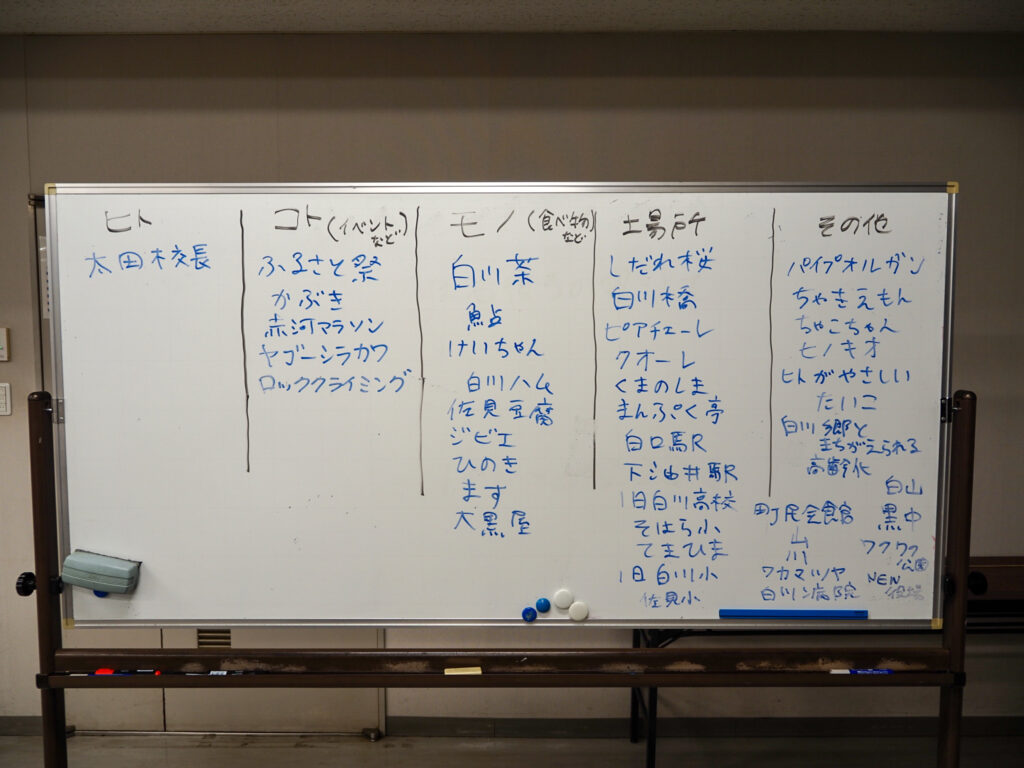 ヒト
太田校長
コト(イベントなど)
ふるさと祭
かぶき
赤河マラソン
ヤゴーシラカワ
ロッククライミング
モノ(食べ物など)
白川茶
鮎
けいちゃん
白川ハム
佐見豆腐
ジビエ
ひのき
ます
大黒屋
場所
しだれ桜
白川橋
ピアチェーレ
クオーレ
くまのしま
まんぷく亭
白口駅
下油井駅
旧白川高校
そはら小
てまひま
旧白川小
佐見小
その他
パイプオルガン
ちゃきえもん
ちゃこちゃん
ヒノキオ
ヒトがやさしい
たいこ
白川郷と
まちがえられる
高齢化
白山
町民会館
黒中
山
川
ワクワク
公園
ワカマツヤ
NEW
役場
白川病院